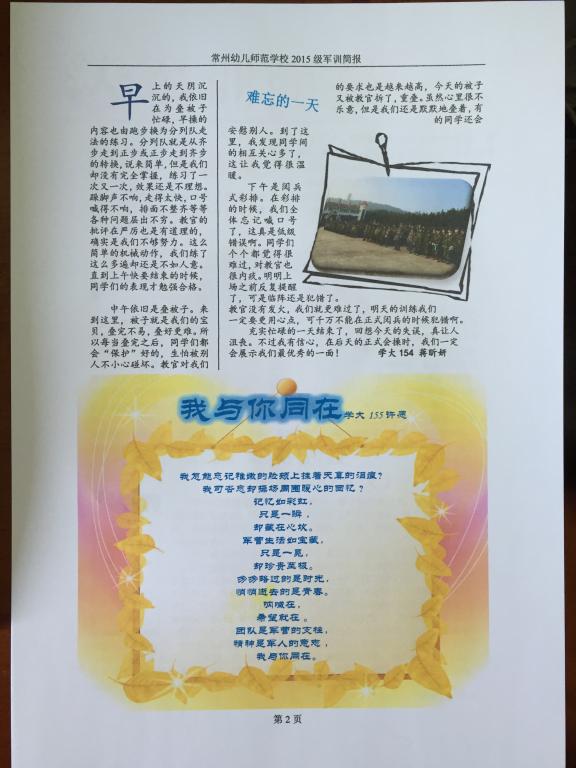 常州幼儿师范学校 2015 级军训简报
难忘的一天
早上的天阴沉
沉的，我依旧
在为叠被子
忙碌，早操的
内容也由跑步换为分列队走
法的练习。分列队就是从齐
步走到正步或正步走到齐步
的转换，说来简单，但是我们
却没有完全掌握，练习了一
次又一次，效果还是不理想。
跺脚声不响，走得太快，口号
喊得不响，排面不整齐等等
各种问题层出不穷。教官的
批评在严厉也是有道理的，
确实是我们不够努力。这么
简单的机械动作，我们练了
这么多遍却还是不如人意。
直到上午快要结束的时候，
同学们的表现才勉强合格。
中午依旧是叠被子。来
到这里，被子就是我们的宝
贝，叠完不易，叠好更难。所
以每当叠完之后，同学们都
会“保护”好的，生怕被别
人不小心碰坏。教官对我们
的要求也是越来越高，今天的被子
又被教官拆了，重叠。虽然心里很不
乐意，但是我们还是默默地叠着，有
的同学还会
安慰别人。到了这
里，我发现同学间
的相互关心多了，
这让我觉得很温
暖。
下午是阅兵
式彩排。在彩排
的时候，我们全
体忘记喊口号
了，这真是低级
错误啊。同学们
个个都觉得很
难过，对教官也
很内疚。明明上
场之前反复提醒
了，可是临阵还是犯错了。
教官没有发火，我们就更难过了，明天的训练我们
一定要更用心点，可千万不能在正式阅兵的时候犯错啊。
充实忙碌的一天结束了，回想今天的失误，真让人
沮丧。不过我有信心，在后天的正式会操时，我们一定
会展示我们最优秀的一面！ 学大 154 蒋昕妍
我与你同在学大 155 许愿
我怎能忘记稚嫩的脸颊上挂着天真的泪痕？
我可否忘却操场周围暖心的回忆？
记忆如彩虹，
只是一瞬，
却藏在心坎。
军营生活如宝藏，
只是一晃，
却珍贵至极。
匆匆略过的是时光，
悄悄逝去的是青春。
呐喊在，
希望就在。
团队是军营的支柱，
精神是军人的意志，
我与你同在。
第 2 页